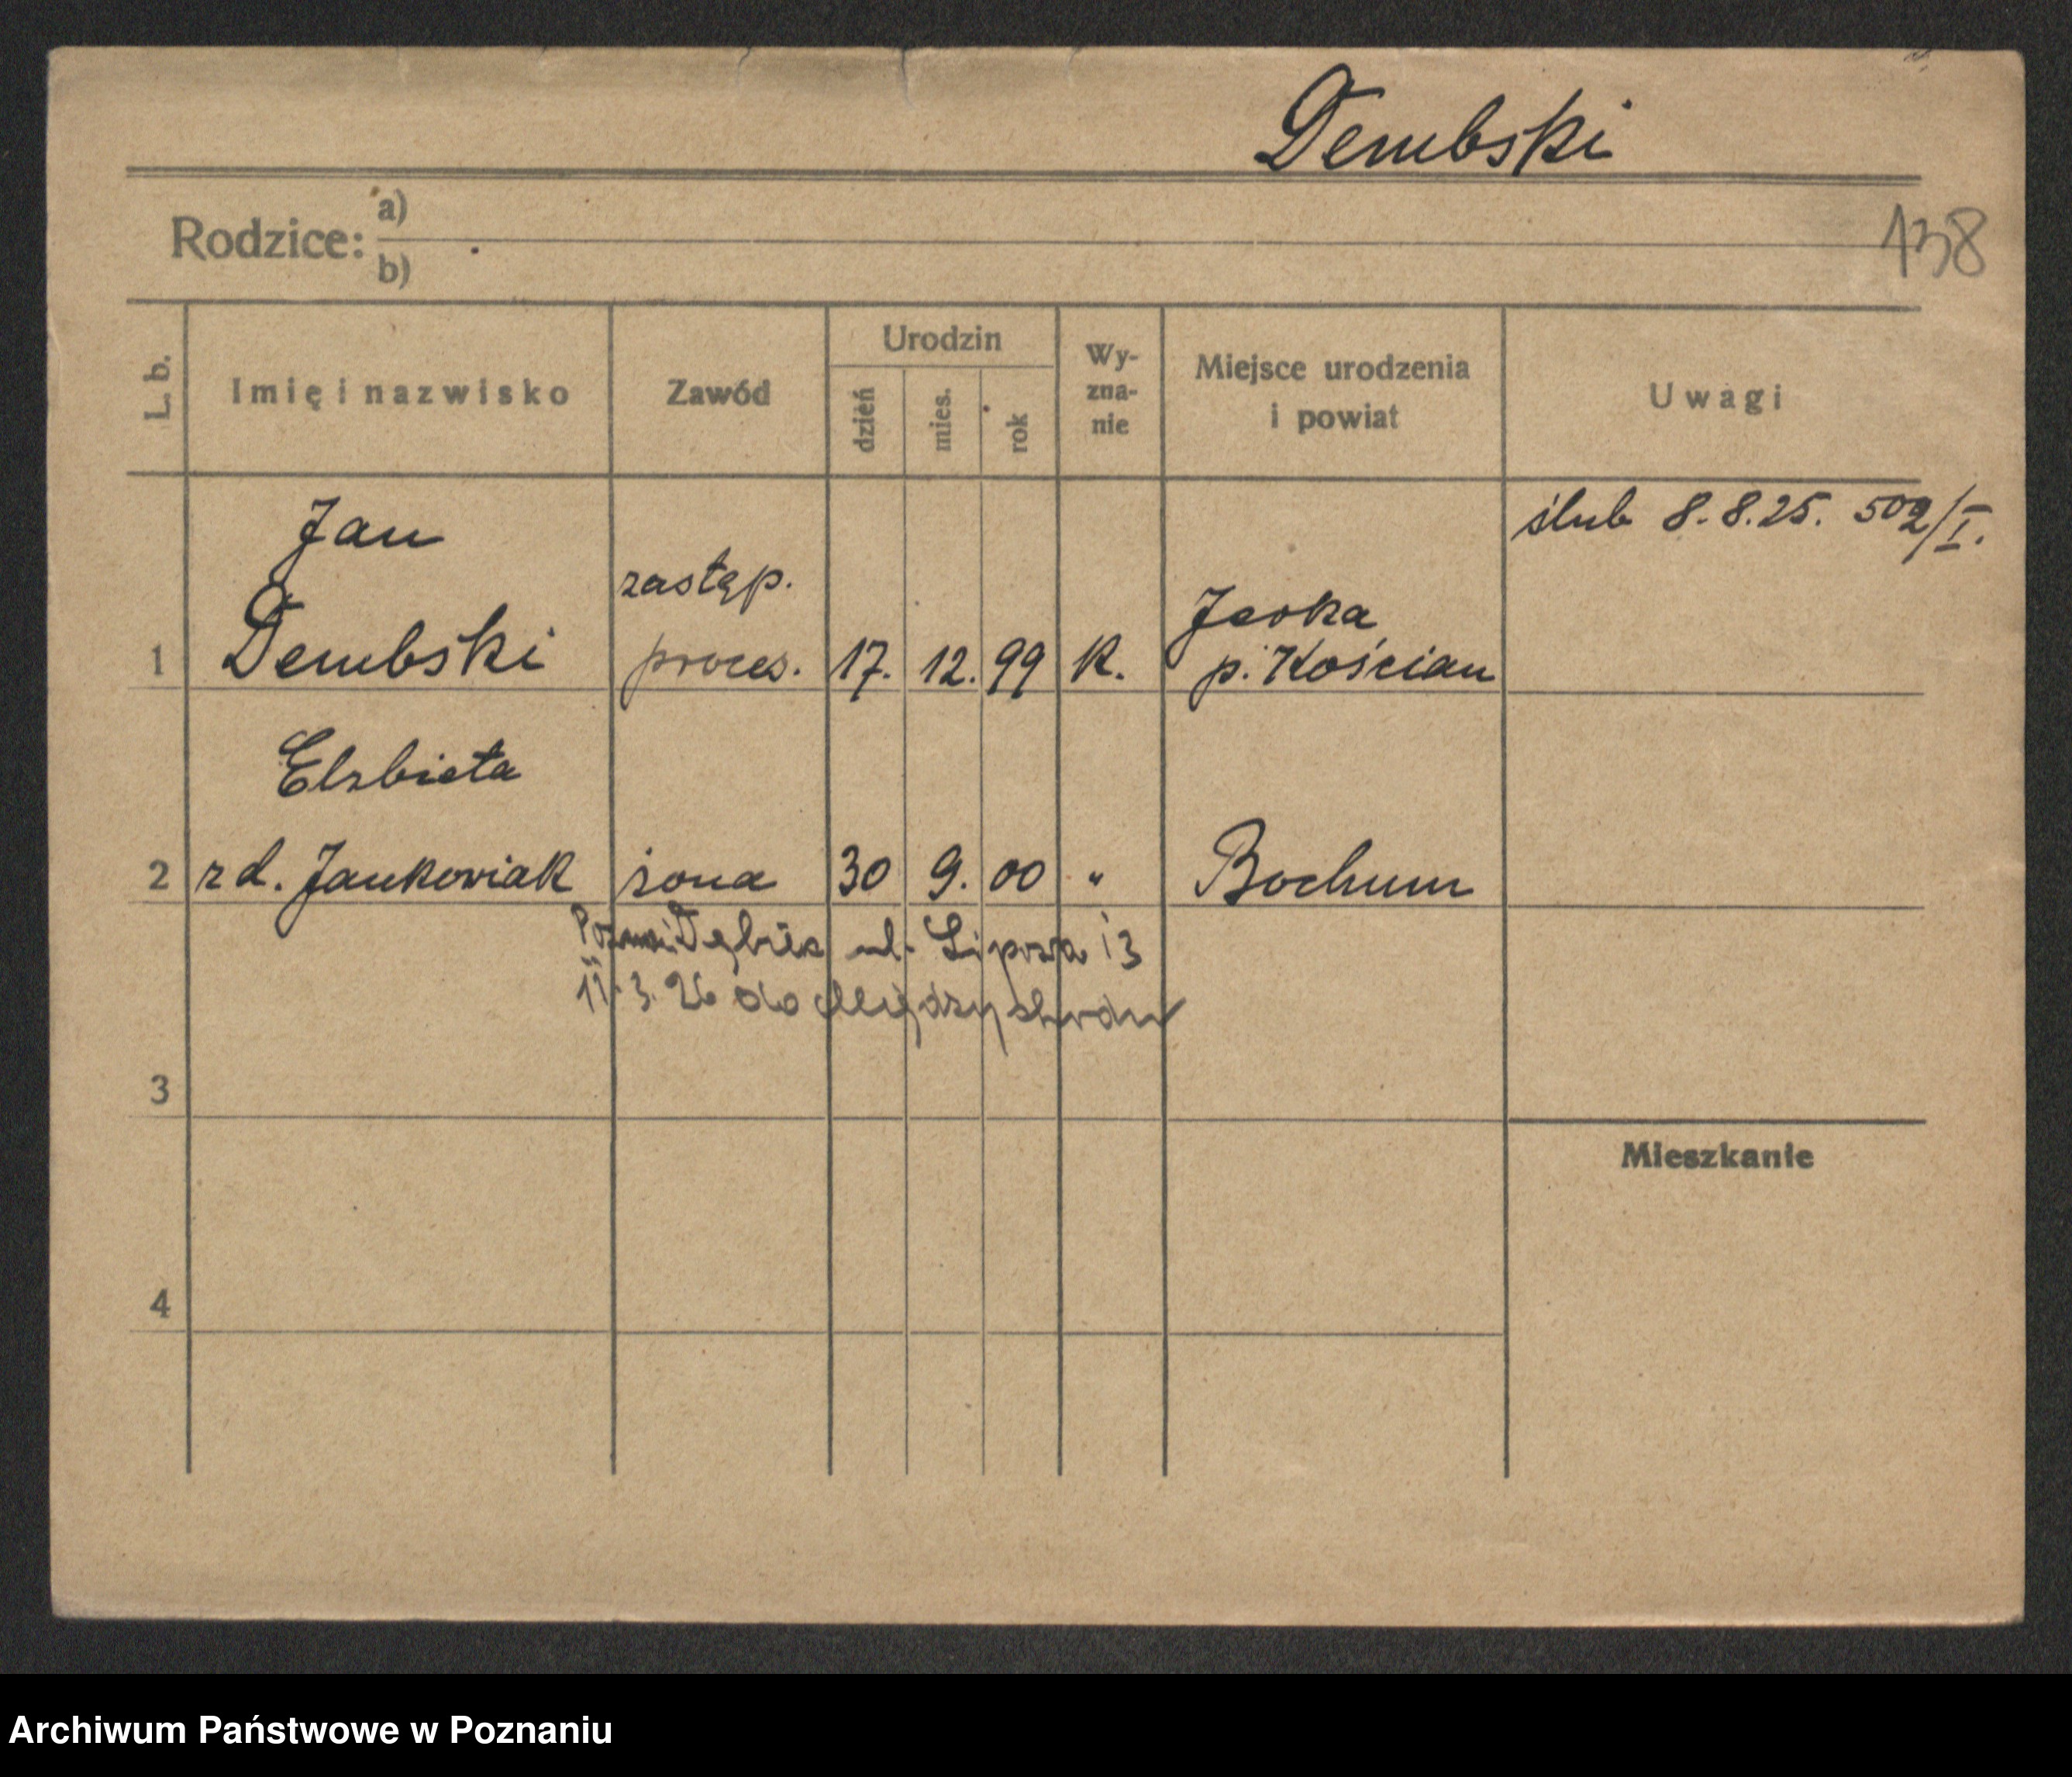 Dembski
Rodzice: a)
b)
138
L. b.
Imię i nazwisko
Zawód
Urodzin
dzień
mies.
rok
Wy-
zna-
nie
Miejsce urodzenia
i powiat
Uwagi
ślub 8.8.25. 502/I.
Jan
zastęp.
1 Dembski proces. 17. 12. 99 K. p. Kościan
Elzbieta
2 zd. Jankowiak żona 30 9. 00 " Bochum
ul. Lipowa 13
11.3.26 do Międzychodu
3
Mieszkanie
4
Archiwum Państwowe w Poznaniu